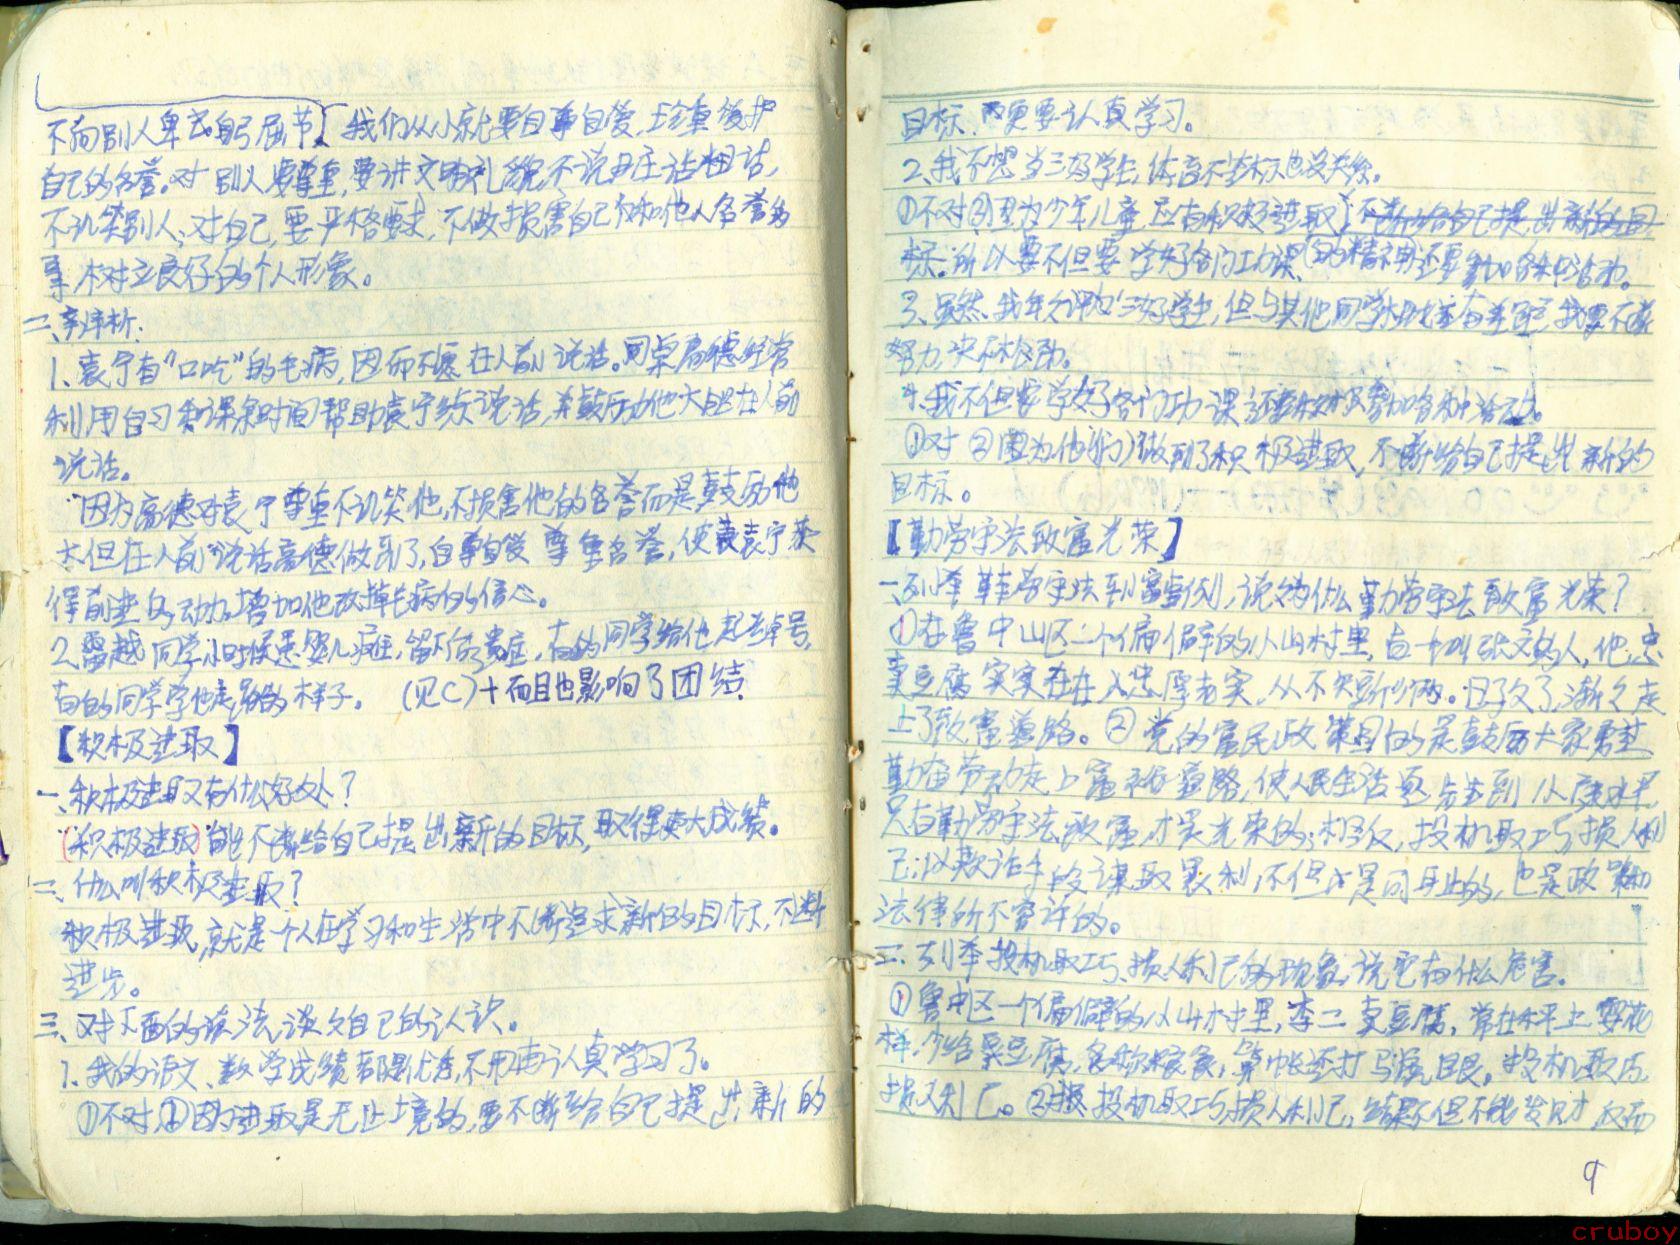 不向别人卑躬屈节。我们从小就要自尊自爱,珍重爱护
自己的名誉。对别人要尊重,要讲文明礼貌不说脏话粗话,
不讥笑别人、对自己,要严格要求,不做损害自己和他人名誉的
事树立良好的个人形象。
二、辨析:
1、袁宁有“口吃”的毛病,因而不愿在人前说话。同桌高德经常
利用自习和课余时间帮助袁宁练说话,并鼓励他大胆在人前
说话。
因为高德对袁宁尊重不讥笑他,不损害他的名誉而是鼓励他
大但在人前说话高德做到了,自尊自爱尊重名誉,使袁宁获
得前进的动力,增加他改掉毛病的信心。
2、雷越同学小时候患婴儿症,留下后遗症,有的同学给他起绰号,
有的同学学他走路的样子。 (见C)+而且也影响了团结
【积极进取】
一、积极进取又有什么好处?
(积极进取)能不断给自己提出新的目标,取得更大成绩。
二、什么叫积极进取?
积极进取,就是个人在学习和生活中不断追求新的目标,不断
进步。
三、对下面的说法谈谈自己的认识。
1、我的语文、数学成绩都是优秀,不用再认真学习了。
①不对,②因为进取是无止境的,要不断给自己提出新的
目标,更要认真学习。
2、我不想当三好学生,体育不达标也没关系。
①不对②因为少年儿童应有积极进取不断给自己提出新的目
标。所以要不但要学好各门功课(的精神)还要参加各种活动。
3、虽然我年年评为三好学生,但与其他同学相比还有差距,我要不断
努力,决不松劲。
4、我不但要学好各门功课还要积极参加各种活动。
①对②因为他(们)做到了积极进取,不断给自己提出新的
目标。
【勤劳守法致富光荣】
一、列举勤劳守法致富事例,说说为什么勤劳守法致富光荣?
①在鲁中山区一个偏僻的小山村里,有一个叫张文的人,他
卖豆腐实实在在,忠厚老实,从不欠斤少两。日子久了,渐渐走
上了致富道路。②党的富民政策目的是鼓励大家勇
勤奋劳动走上富裕道路,使人民生活逐步达到小康水平
只有勤劳守法致富,才是光荣的;相反,投机取巧损人利
己,以欺诈手段谋取暴利,不但是可耻的,也是政策和
法律所不容许的。
二、列举投机取巧、损人利己的现象,说它有什么危害。
①鲁中区一个偏僻的小山村里,李二卖豆腐,常在秤上耍花
样,少给豆腐,多称粮食,算帐还打马虎眼。投机取巧
损人利己。②投机取巧损人利己,结果不但不能发财,反而
9
cruboy